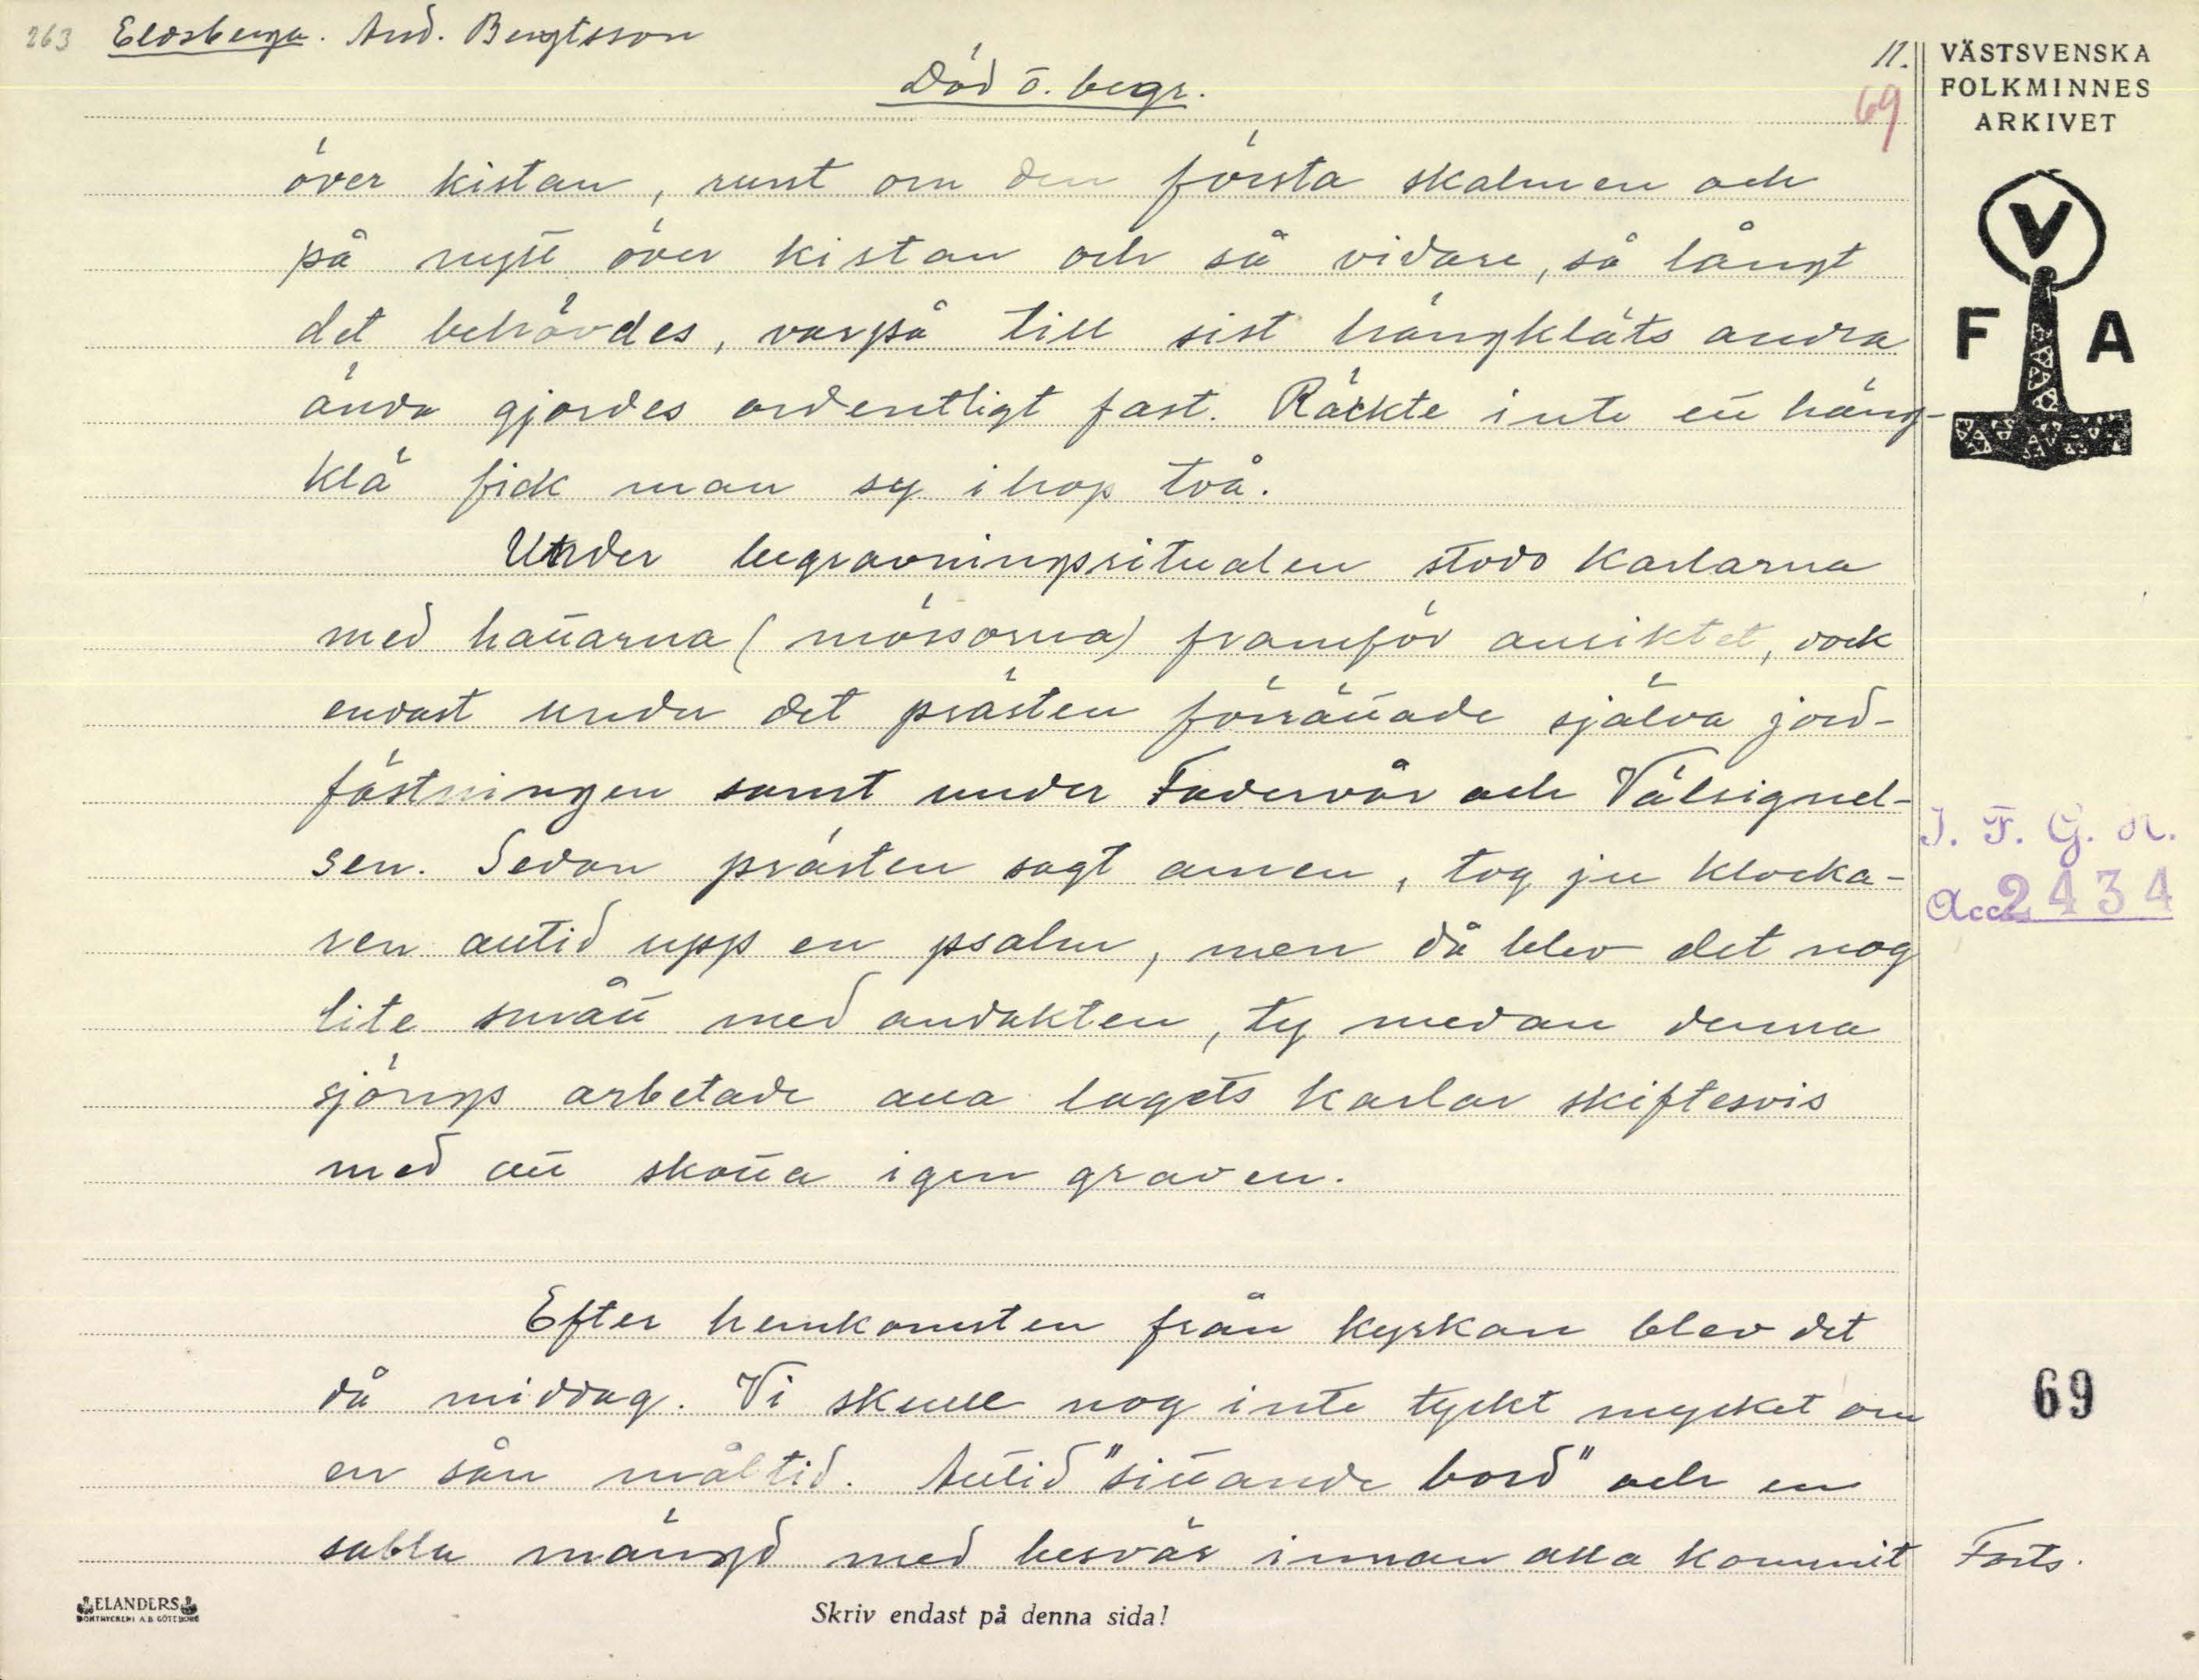 263 Eldsberga. And. Bengtsson
Död o. begr.
11.
69
VÄSTSVENSKA
FOLKMINNES
ARKIVET
V
F A
över kistan, runt om den första skalmen och
på nytt över kistan och så vidare, så långt
det behövdes, varpå till sist hängkläts andra
ända gjordes ordentligt fast. Räckte inte ett häng-
klä fick man sy ihop två.
Under begravningsritualen stodo karlarna
med hattarna (mössorna) framför ansiktet, dock
endast under det prästen förrättade själva jord-
fästningen samt under Fadervår och Välsignel-
sen. Sedan prästen sagt amen, tog ju klocka-
ren alltid upp en psalm, men då blev det nog
lite smått med andakten, ty medan denna
sjöngs arbetade alla lagets karlar skiftesvis
med att skotta igen graven.
I. F. G. H.
Acc 2434
Efter hemkomsten från kyrkan blev det
då middag. Vi skulle nog inte tyckt mycket om
en sån måltid. Alltid "sittande bord" och en
sabla mängd med besvär innan alla kommit
69
Forts.
ELANDERS
BOKTRYCKERI A.B. GÖTEBORG
Skriv endast på denna sida!